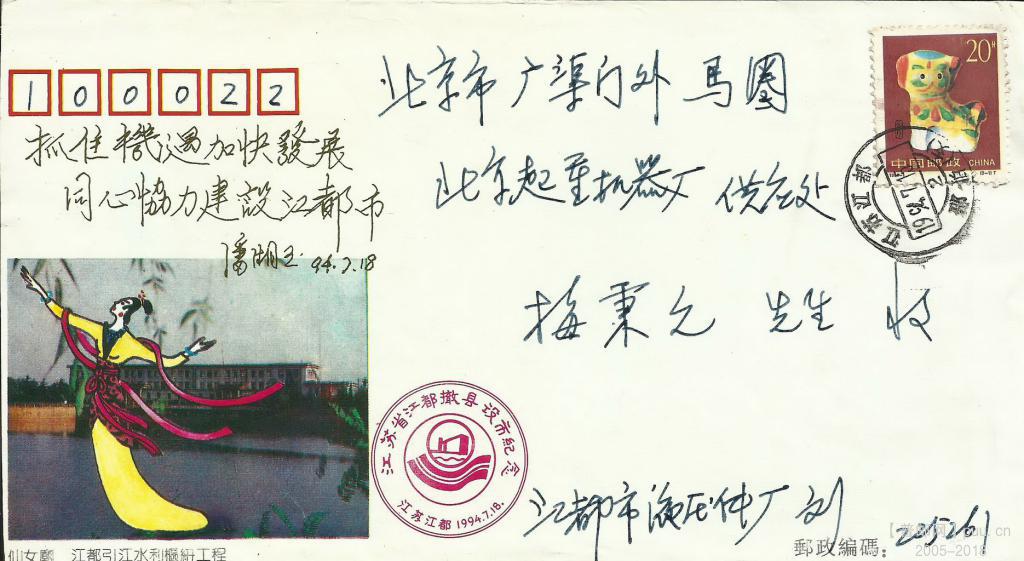 100022
抓住機遇加快發展
同心協力建設江都市
94.7.18
北京市广渠门外马圈
北京起重机器厂 供应处
梅秉元 先生 收
20分
中国邮政 CHINA
江苏江都
江苏省江都撤县设市纪念
江苏江都 1994.7.18.
江都市液压件厂 刘
郵政編碼：225261
仙女廟 江都引江水利樞紐工程
2005-2018